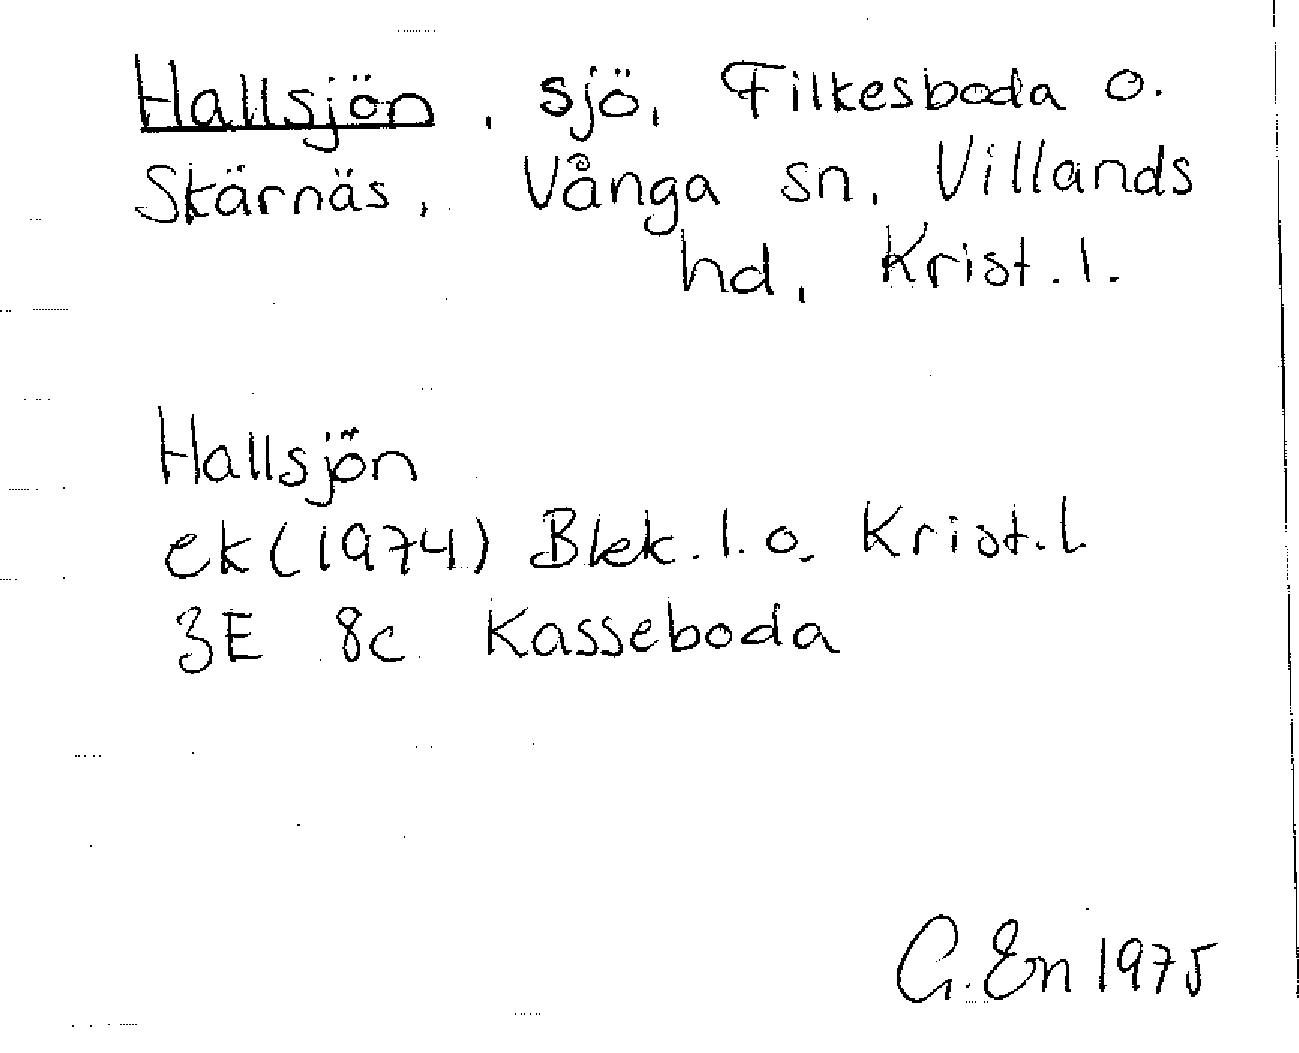 Hallsjön, sjö, Filkesboda o.
Skärnäs, Vånga sn, Villands
hd, Krist. l.
Hallsjön
ek (1974) Blek. l. o. Krist. l
3E 8c Kasseboda
G. En 1975